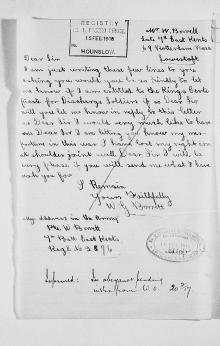 REGISTRY
15 FEB 1918
HOUNSLOW.
Mr W. Borrett
Late 7th East Kents
49 Rotterdam Road
Lowestoft
Dear Sir
I am just writing these few lines to you
asking you would you be so kindly to let
me know if I am entitled to the Kings Certi-
ficate for Discharge Soldiers if so Dear Sir
will you let me know in reply to this letter
as Dear Sir I would very much like to have
one Dear Sir I am letting you know my
in this war I have lost my right arm
at shoulder joint well Dear Sir I will be
very please if you will send me what I have
ask you for
I Remain
Yours Faithfully
W. Borrett
My address in the Army
Pte W. Borrett
7th Batt East Kents
Regt No
Informed: In abeyance pending
from W.O.